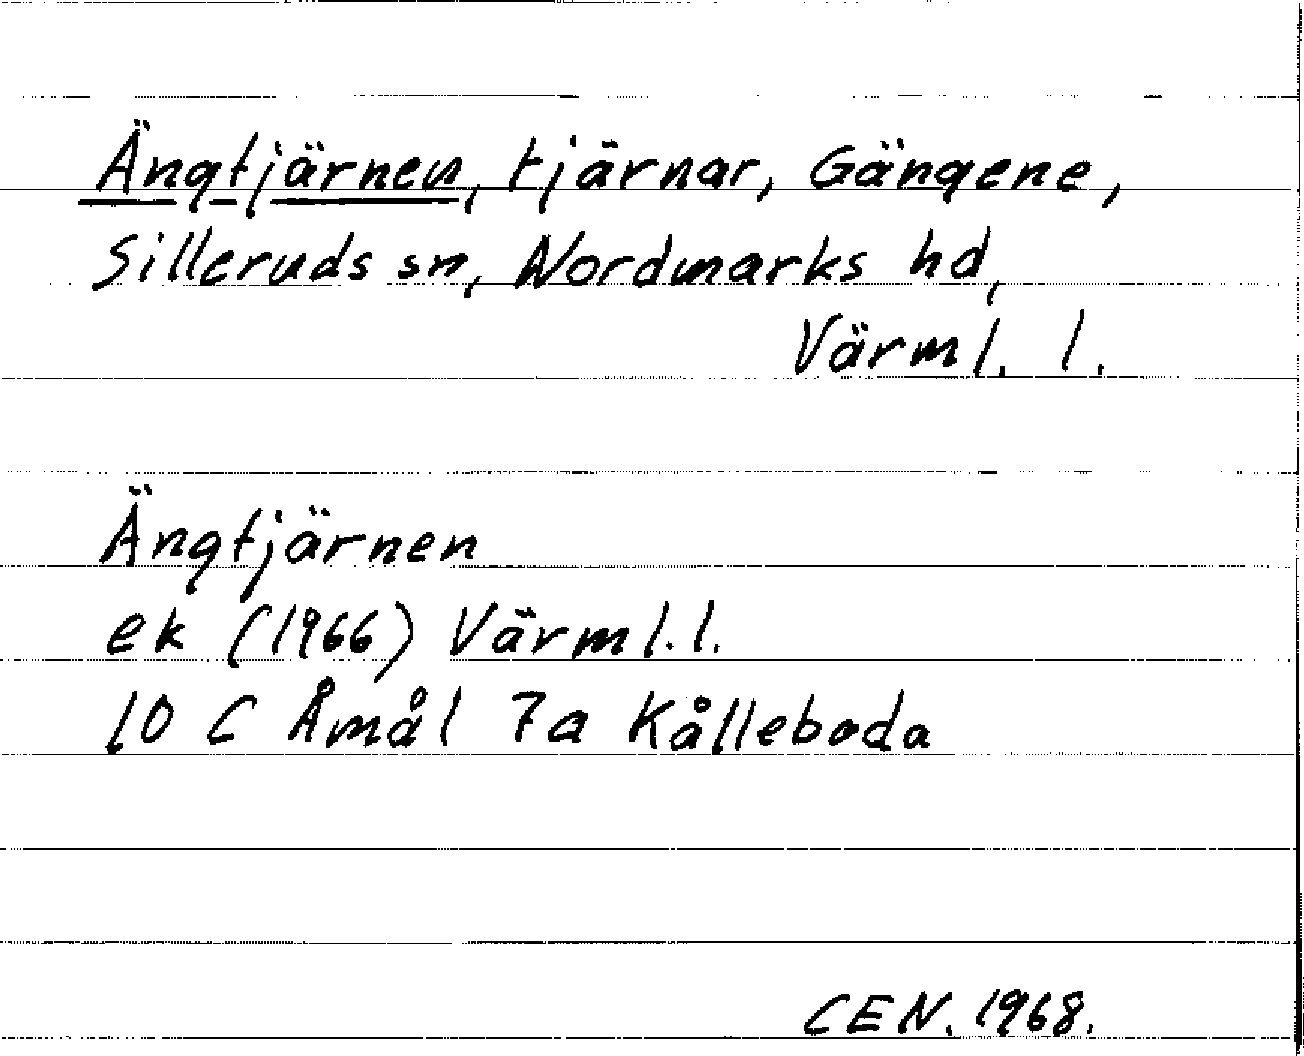 Ängtjärnen, tjärnar, Gängene,
Silleruds sn, Nordmarks hd,
Värml. l.
Ängtjärnen
ek (1966) Värml. l.
10 C Åmål 7a Kålleboda
CEN. 1968.